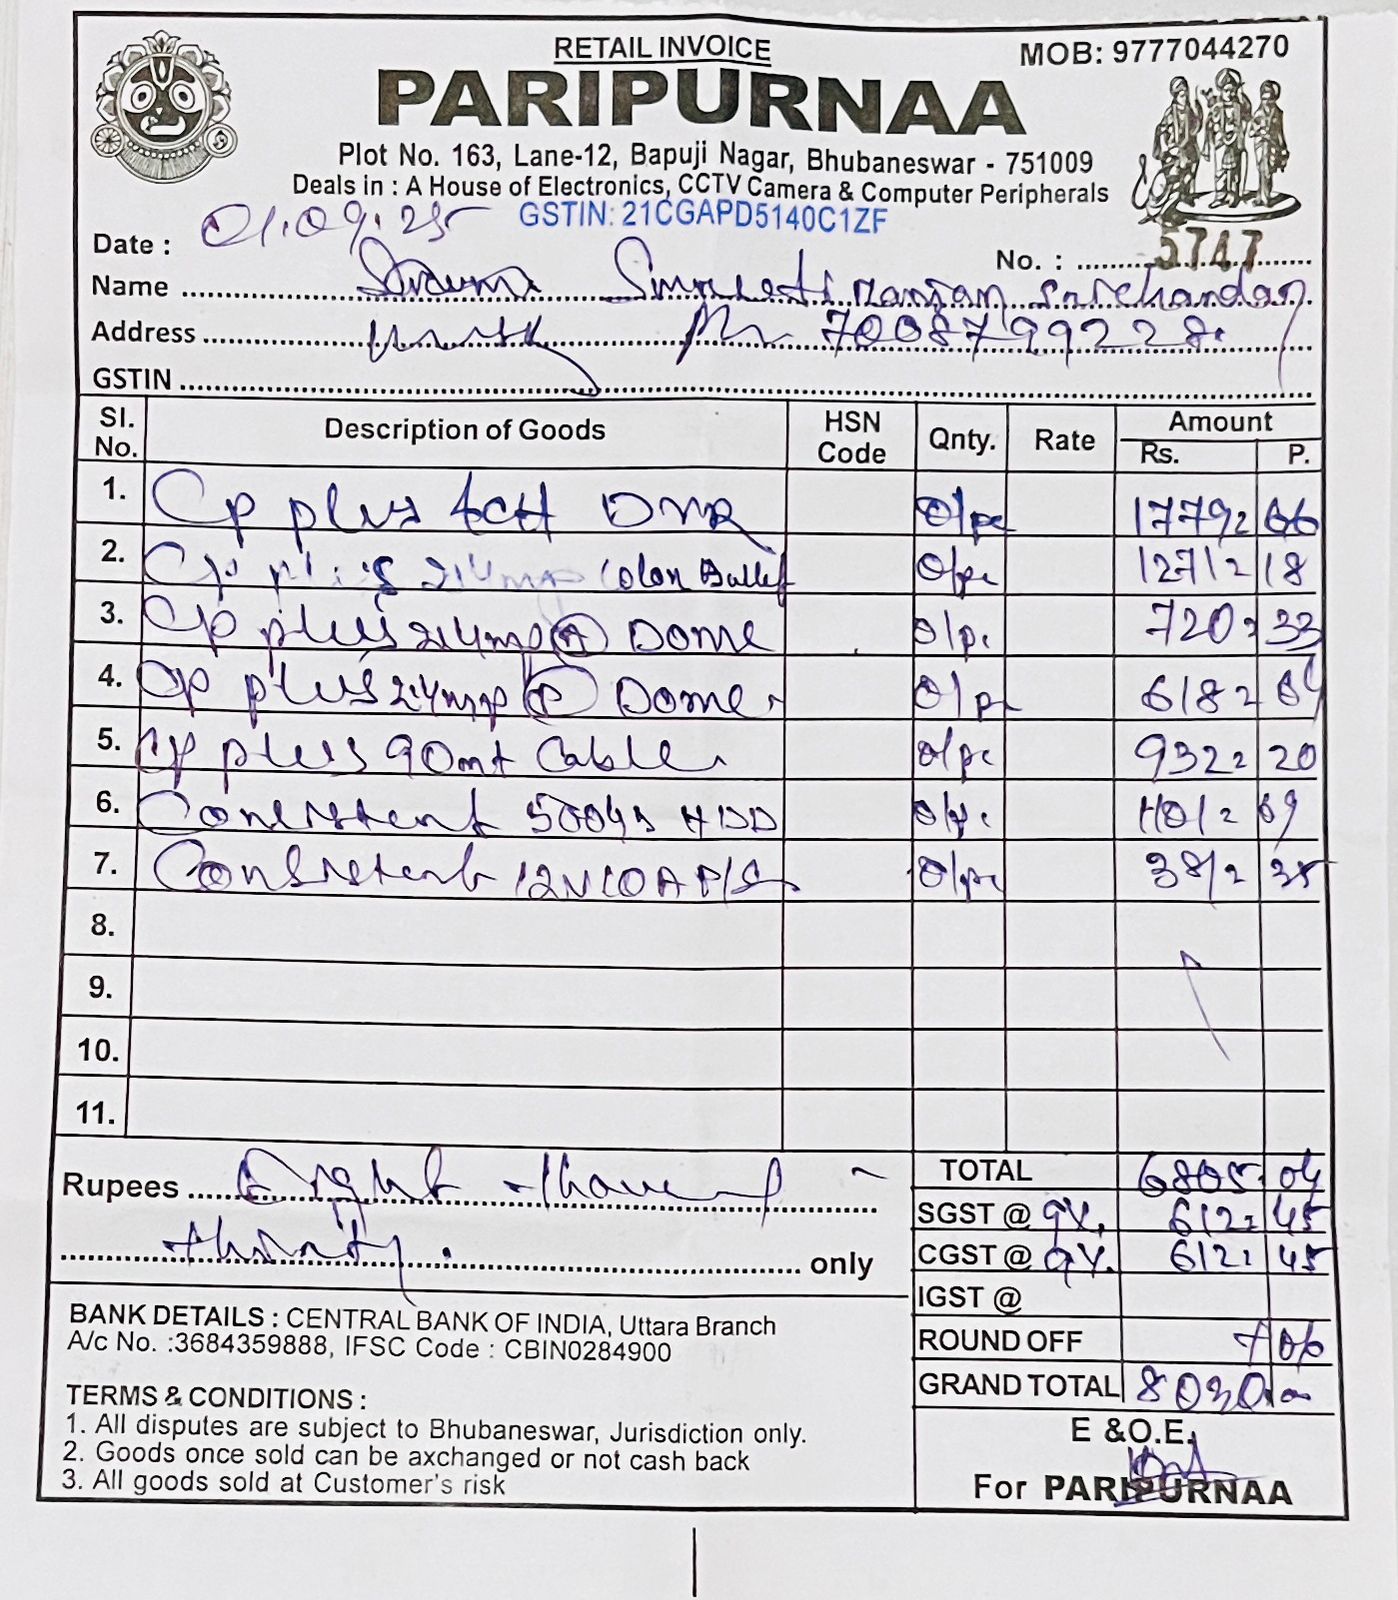 RETAIL INVOICE
MOB: 9777044270
PARIPURNAA
Plot No. 163, Lane-12, Bapuji Nagar, Bhubaneswar - 751009
Deals in : A House of Electronics, CCTV Camera & Computer Peripherals
GSTIN: 21CGAPD5140C1ZF
Date : 01.09.25
No. : 5747
Name Ranjan
Address Ph 7008799228
GSTIN
Sl. No. Description of Goods HSN Code Qnty. Rate Amount Rs. P.
1. Cp plus 4CH DVR 01pc 1779=66
2. Cp plus 2.4mp Color Bullet 01pc 1271=18
3. Cp plus 2.4mp Dome 01pc 720=33
4. Cp plus 2.4mp Dome 01pc 618=64
5. Cp plus 90mt Cable 01pc 932=20
6. Consistent 500GB HDD 01pc 1101=69
7. Consistent 12V10A P/S 01pc 381=35
8.
9.
10.
11.
TOTAL 6805.04
SGST @ 9%. 612=45
CGST @ 9%. 612=45
IGST @
ROUND OFF +06
GRAND TOTAL 8030.00
Rupees Eight thousand
thirty. only
BANK DETAILS : CENTRAL BANK OF INDIA, Uttara Branch
A/c No. :3684359888, IFSC Code : CBIN0284900
TERMS & CONDITIONS :
1. All disputes are subject to Bhubaneswar, Jurisdiction only.
2. Goods once sold can be axchanged or not cash back
3. All goods sold at Customer's risk
E &O.E.
For PARIPURNAA